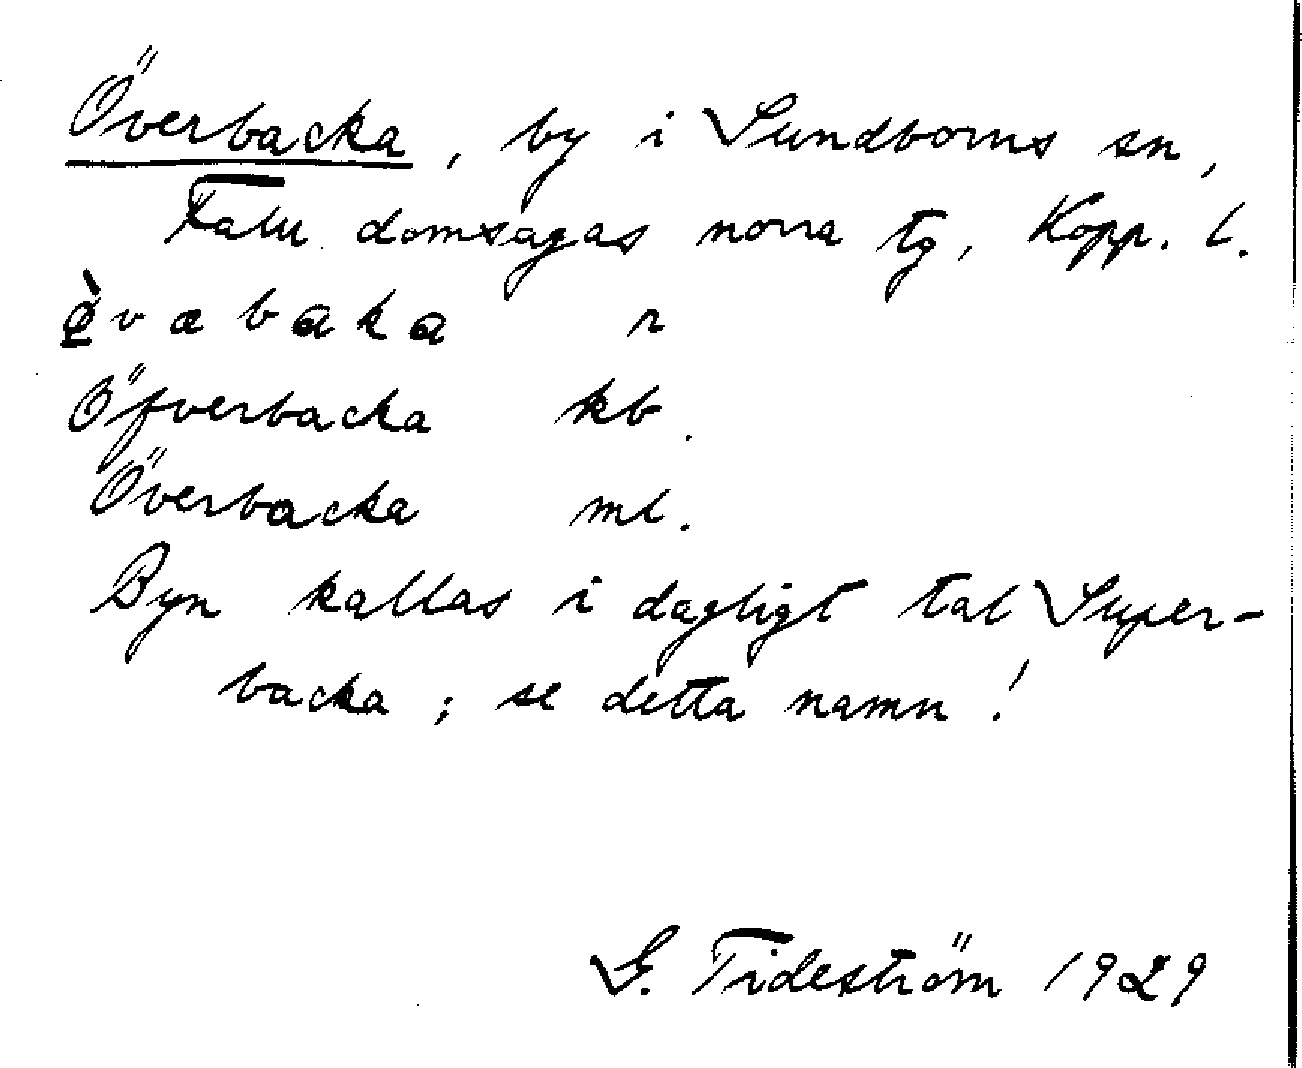 Överbacka, by i Sundborns sn,
Falu domsagas norra tg, Kopp. l.
ø̀væbaka r
Öfverbacka kb.
Överbacka ml.
Byn kallas i dagligt tal Super-
backa; se detta namn!
G. Tideström 1929